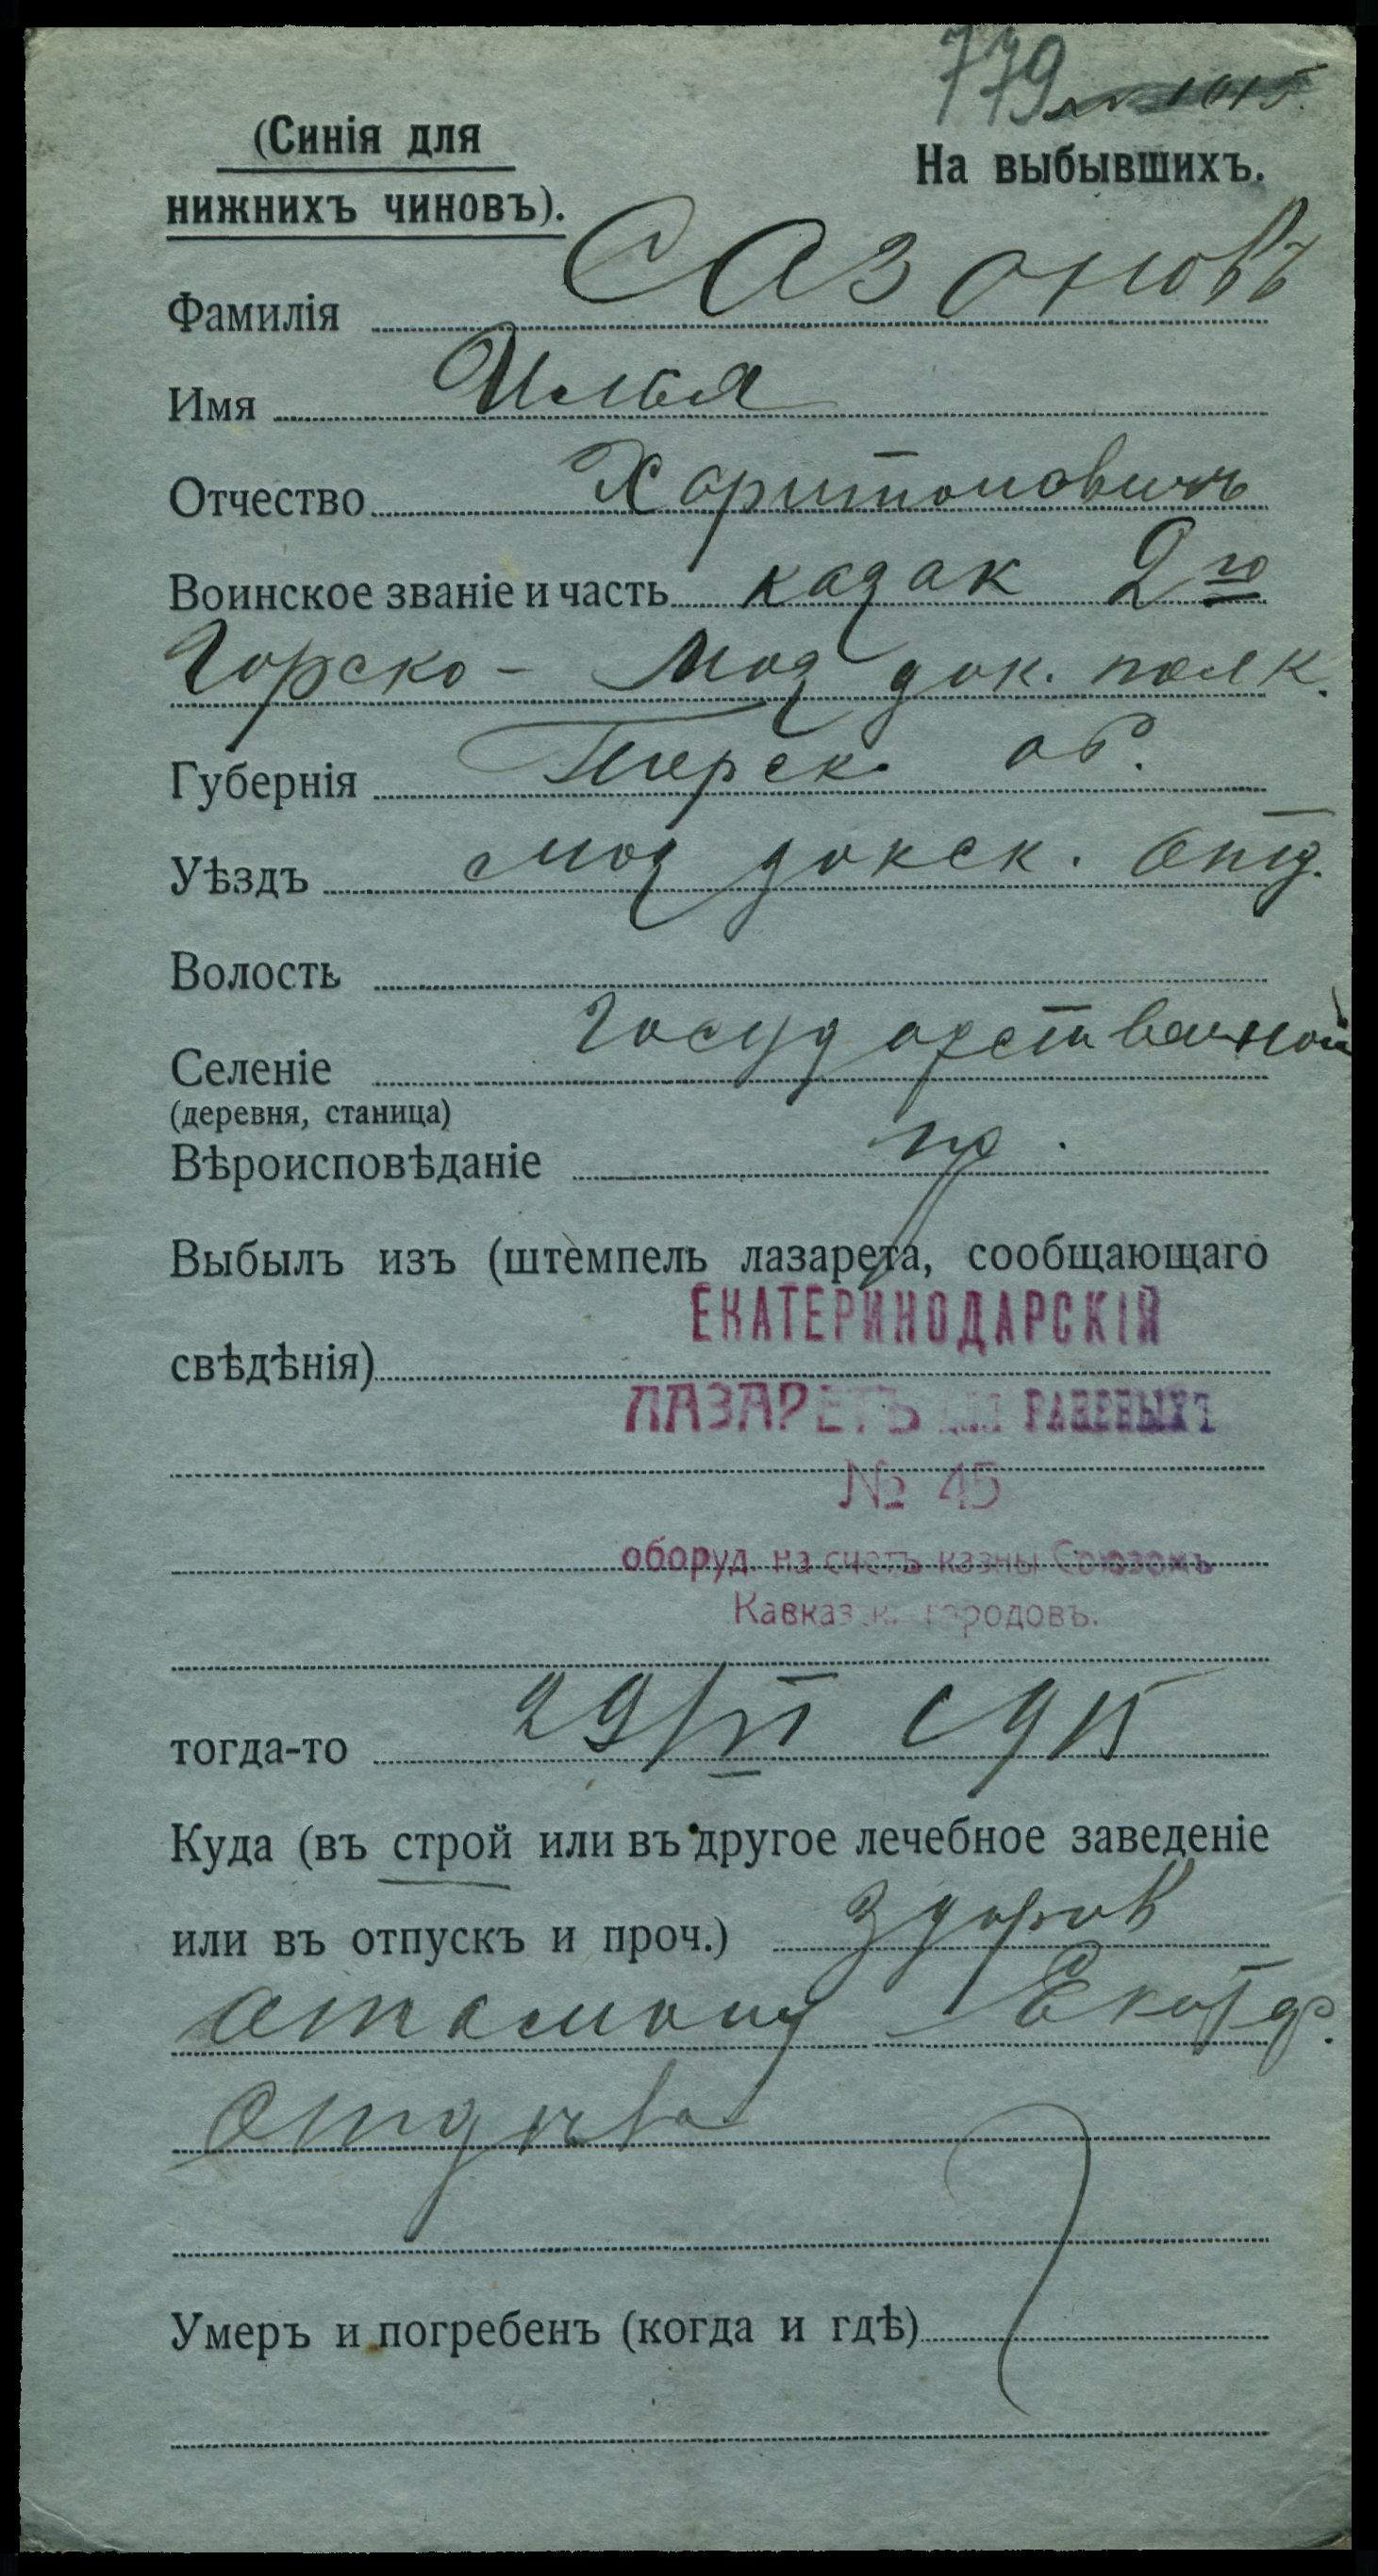 779
1615.
(Синія для
нижнихъ чиновъ).
На выбывшихъ.
Фамилія Сазоновъ
Имя Илья
Отчество Харитоновичъ
Воинское званіе и часть казак 2го
Горско-Моздок. полк.
Губернія Терск. об.
Уѣздъ Моздокск. отд.
Волость
Селеніе Государственной
(деревня, станица)
Вѣроисповѣданіе пр.
Выбылъ изъ (штемпель лазарета, сообщающаго
ЕКАТЕРИНОДАРСКІЙ
свѣдѣнія)
ЛАЗАРЕТЪ для РАНЕНЫХЪ
№ 45
оборуд. на счетъ казны Союзомъ
Кавказск. городовъ.
тогда-то 29/VI 1915
Куда (въ строй или въ другое лечебное заведеніе
или въ отпускъ и проч.) здоров
атаману Екатд.
отдѣла
Умеръ и погребенъ (когда и гдѣ)